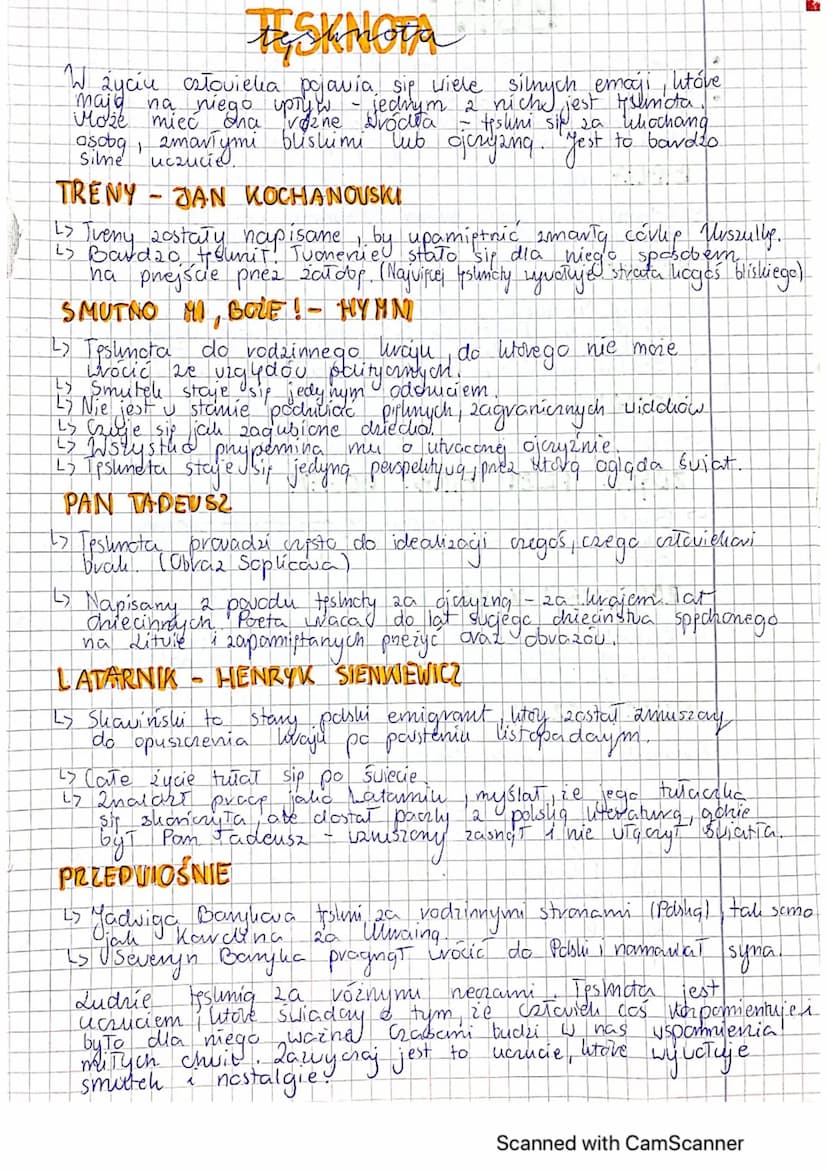 TĘSKNOTA
tęsknota
W życiu człowieka pojawia się wiele silnych emocji, które
mają na niego wpływ - jednym z nich jest tęsknota.
Może mieć ona różne źródła - tęskni się za ukochaną
osobą, zmarłymi bliskimi lub ojczyzną. Jest to bardzo
silne uczucie.
TRENY - JAN KOCHANOWSKI
↳ Treny zostały napisane, by upamiętnić zmarłą córkę Urszulkę.
↳ Bardzo tęsknił! Tworzenie stało się dla niego sposobem
na przejście przez żałobę. (Najwięcej tęsknoty wywołuje strata kogoś bliskiego)
SMUTNO MI, BOŻE! - HYMN
↳ Tęsknota do rodzinnego kraju, do którego nie może
wrócić ze względów politycznych.
↳ Smutek staje się jedynym odczuciem.
↳ Nie jest w stanie podziwiać pięknych, zagranicznych widoków
↳ Czuje się jak zagubione dziecko.
↳ Wszystko przypomina mu o utraconej ojczyźnie.
↳ Tęsknota staje się jedyną perspektywą, przez którą ogląda świat.
PAN TADEUSZ
↳ Tęsknota prowadzi często do idealizacji czegoś, czego człowiekowi
brak. (Obraz Soplicowa)
↳ Napisany z powodu tęsknoty za ojczyzną - za krajem lat
dziecinnych. Poeta wraca do lat swojego dzieciństwa spędzonego
na Litwie i zapamiętanych przeżyć oraz obrazów.
LATARNIK - HENRYK SIENKIEWICZ
↳ Skawiński to stary polski emigrant, który został zmuszony
do opuszczenia kraju po powstaniu listopadowym.
↳ Całe życie tułał się po świecie.
↳ Znalazł pracę jako Latarnik, myślał, że jego tułaczka
się skończyła, ale dostał paczkę z polską literaturą, gdzie
był Pan Tadeusz - wzruszony zasnął i nie włączył światła.
PRZEDWIOŚNIE
↳ Jadwiga Barykowa tęskni za rodzinnymi stronami (Polską), tak samo
jak Karolina za Ukrainą.
↳ Seweryn Baryka pragnął wrócić do Polski i namawiał syna.
Ludzie tęsknią za różnymi rzeczami. Tęsknota jest
uczuciem, które świadczy o tym, że człowiek coś
było dla niego ważne. Czasami budzi w nas wspomnienia
miłych chwil. Zazwyczaj jest to uczucie, które wywołuje
smutek i nostalgię.
Scanned with CamScanner